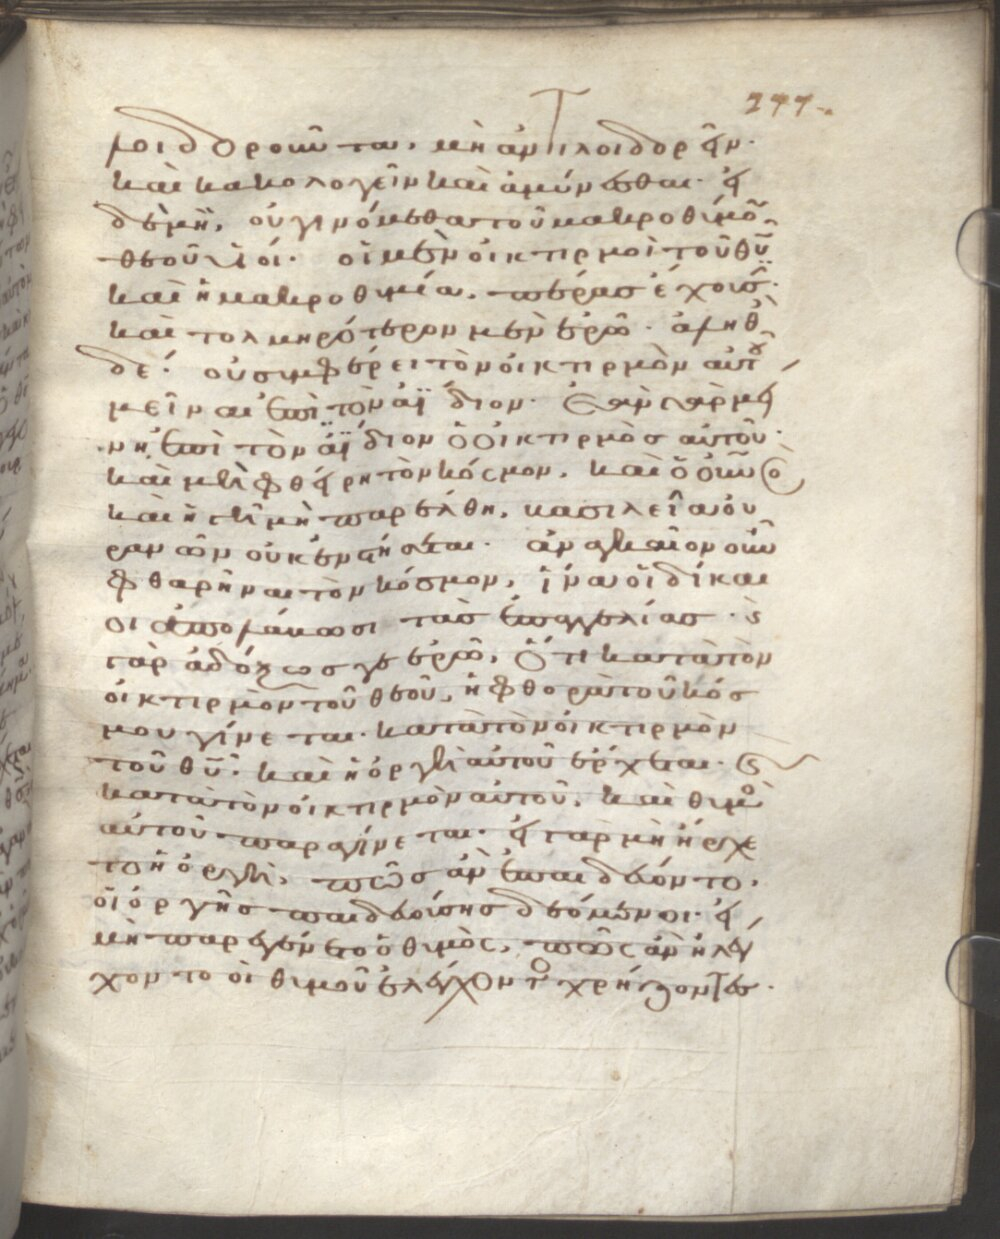 277
λοιδοροῦνται, μὴ ἀντιλοιδορεῖν·
καὶ κακολογεῖν καὶ ἀμύνεσθαι· εἰ
δὲ μὴ, οὐ γινόμεθα τοῦ μακροθύμου
θεοῦ υἱοί· οἱ μὲν οἰκτιρμοὶ τοῦ θῦ
καὶ ἡ μακροθυμία, πέρας ἔχουσι·
καὶ τολμηρότερον μὲν ἐρῶ· ἀληθῶς
δέ· οὐ συμφέρει τὸν οἰκτιρμὸν αὐτοῦ
μεῖναι ἐπὶ τὸν ἀΐδιον· ἐὰν γὰρ μεί
νη ἐπὶ τὸν ἀΐδιον ὁ οἰκτιρμὸς αὐτοῦ·
καὶ μὴ φθείρη τὸν κόσμον, καὶ ὁ οὐνὸς
καὶ ἡ γῆ μὴ παρέλθη, βασιλεία οὐ
ρανῶν οὐκ ἐνστήσεται· ἀναγκαῖον οὖν
φθαρῆναι τὸν κόσμον, ἵνα οἱ δίκαι
οι ἀπολάβωσι τὰς ἐπαγγελίας· εἰ
γὰρ ἀδόξως γε ἐρῶ, ὅτι κατὰ τὸν
οἰκτιρμὸν τοῦ θεοῦ, ἡ φθορὰ τοῦ κόσ
μου γίνεται· κατὰ τὸν οἰκτιρμὸν
τοῦ θῦ· καὶ ἡ ὀργὴ αὐτοῦ ἔρχεται· καὶ
κατὰ τὸν οἰκτιρμὸν αὐτοῦ, καὶ θυμὸς
αὐτοῦ παραγίνεται· εἰ γὰρ μὴ ἤρχε
το ἡ ὀργὴ, πῶς ἂν ἐπαιδεύοντο,
οἱ ὀργῆς παιδευούσης δεόμενοι· εἰ
μὴ παρεγένετο ὁ θυμὸς, πῶς ἂν ἠλέγ
χοντο οἱ θυμοῦ ἐλέγχοντος χρήζοντες·